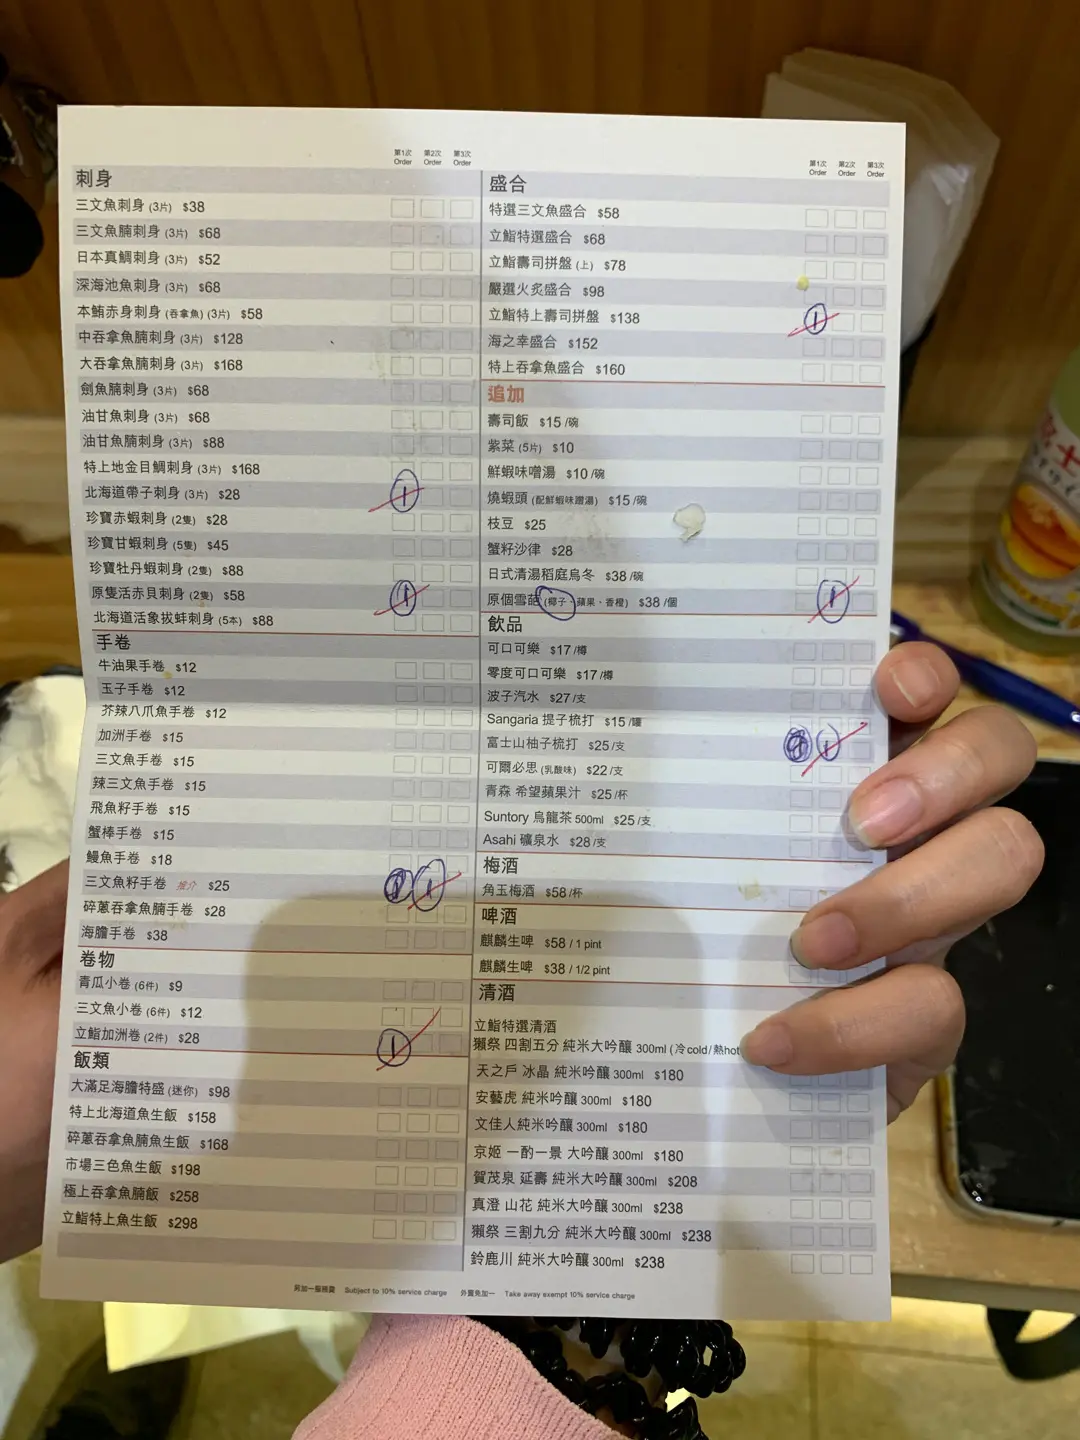 第1次 第2次 第3次
Order Order Order
刺身
三文魚刺身 (3片) $38
三文魚腩刺身 (3片) $68
日本真鯛刺身 (3片) $52
深海池魚刺身 (3片) $68
本鮪赤身刺身 (吞拿魚) (3片) $58
中吞拿魚腩刺身 (3片) $128
大吞拿魚腩刺身 (3片) $168
劍魚腩刺身 (3片) $68
油甘魚刺身 (3片) $68
油甘魚腩刺身 (3片) $88
特上地金目鯛刺身 (3片) $168
北海道帶子刺身 (3片) $28 1
珍寶赤蝦刺身 (2隻) $28
珍寶甘蝦刺身 (5隻) $45
珍寶牡丹蝦刺身 (2隻) $88
原隻活赤貝刺身 (2隻) $58 1
北海道活象拔蚌刺身 (5本) $88
手卷
牛油果手卷 $12
玉子手卷 $12
芥辣八爪魚手卷 $12
加洲手卷 $15
三文魚手卷 $15
辣三文魚手卷 $15
飛魚籽手卷 $15
蟹棒手卷 $15
鰻魚手卷 $18
三文魚籽手卷 推介 $25 1
碎蔥吞拿魚腩手卷 $28
海膽手卷 $38
卷物
青瓜小卷 (6件) $9
三文魚小卷 (6件) $12
立鮨加洲卷 (2件) $28 1
飯類
大滿足海膽特盛 (迷你) $98
特上北海道魚生飯 $158
碎蔥吞拿魚腩魚生飯 $168
市場三色魚生飯 $198
極上吞拿魚腩飯 $258
立鮨特上魚生飯 $298
第1次 第2次 第3次
Order Order Order
盛合
特選三文魚盛合 $58
立鮨特選盛合 $68
立鮨壽司拼盤 (上) $78
嚴選火炙盛合 $98
立鮨特上壽司拼盤 $138 1
海之幸盛合 $152
特上吞拿魚盛合 $160
追加
壽司飯 $15 /碗
紫菜 (5片) $10
鮮蝦味噌湯 $10 /碗
燒蝦頭 (配鮮蝦味噌湯) $15 /碗
枝豆 $25
蟹籽沙律 $28
日式清湯稻庭烏冬 $38 /碗
原個雪葩 (椰子、蘋果、香橙) $38 /個 1
飲品
可口可樂 $17 /樽
零度可口可樂 $17 /樽
波子汽水 $27 /支
Sangaria 提子梳打 $15 /罐
富士山柚子梳打 $25 /支 1
可爾必思 (乳酸味) $22 /支
青森 希望蘋果汁 $25 /杯
Suntory 烏龍茶 500ml $25 /支
Asahi 礦泉水 $28 /支
梅酒
角玉梅酒 $58 /杯
啤酒
麒麟生啤 $58 / 1 pint
麒麟生啤 $38 / 1/2 pint
清酒
立鮨特選清酒
獺祭 四割五分 純米大吟釀 300ml (冷cold/熱hot
天之戶 冰晶 純米吟釀 300ml $180
安藝虎 純米吟釀 300ml $180
文佳人純米吟釀 300ml $180
京姬 一酌一景 大吟釀 300ml $180
賀茂泉 延壽 純米大吟釀 300ml $208
真澄 山花 純米大吟釀 300ml $238
獺祭 三割九分 純米大吟釀 300ml $238
鈴鹿川 純米大吟釀 300ml $238
另加一服務費 Subject to 10% service charge 外賣免加一 Take away exempt 10% service charge